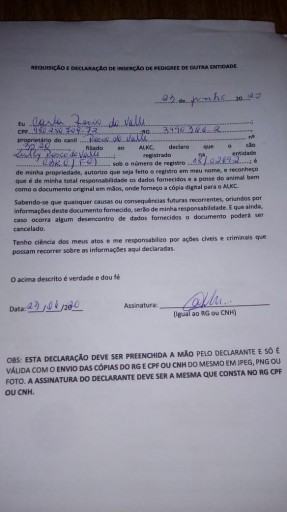 REQUISIÇÃO E DECLARAÇÃO DE INSERÇÃO DE PEDIGREE DE OUTRA ENTIDADE.
23 de junho 20 20
Eu Carla do Valle
CPF RG
proprietário do canil do Valle nº
filiado ao ALKC, declaro que o cão
registrado na entidade
sob o número de registro é
de minha propriedade, autorizo que seja feito o registro em meu nome, e reconheço
que é de minha total responsabilidade os dados fornecidos e a posse do animal bem
como o documento original em mãos, onde forneço a cópia digital para o ALKC.
Sabendo-se que quaisquer causas ou consequências futuras recorrentes, oriundos por
informações deste documento fornecido, serão de minha responsabilidade. E que ainda,
caso ocorra algum desencontro de dados fornecidos o documento poderá ser
cancelado.
Tenho ciência dos meus atos e me responsabilizo por ações cíveis e criminais que
possam recorrer sobre as informações aqui declaradas.
O acima descrito é verdade e dou fé
Data: 23 / /2020 Assinatura:
(Igual ao RG ou CNH)
OBS: ESTA DECLARAÇÃO DEVE SER PREENCHIDA A MÃO PELO DECLARANTE E SÓ É
VÁLIDA COM O ENVIO DAS CÓPIAS DO RG E CPF OU CNH DO MESMO EM JPEG, PNG OU
FOTO. A ASSINATURA DO DECLARANTE DEVE SER A MESMA QUE CONSTA NO RG CPF
OU CNH.